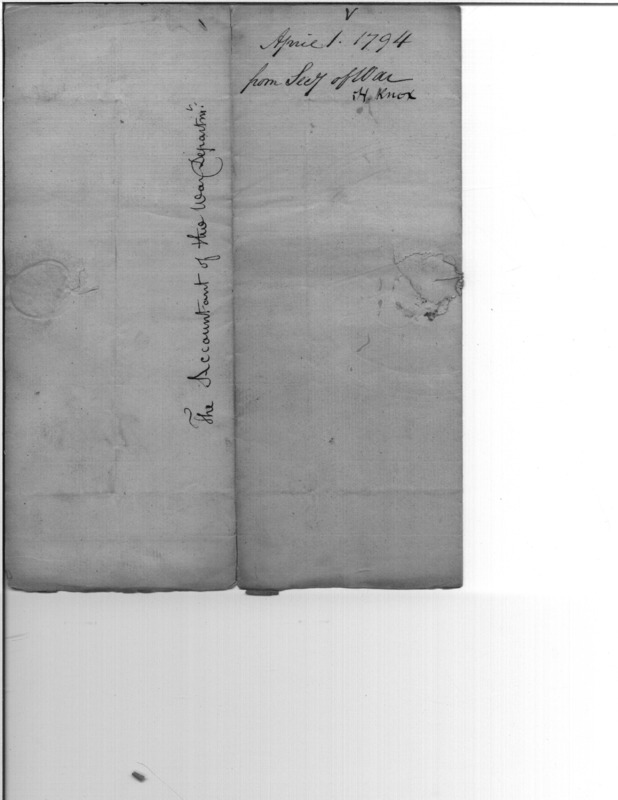 April 1. 1794
from Secy of War
H Knox
The Accountant of the War Departmt.